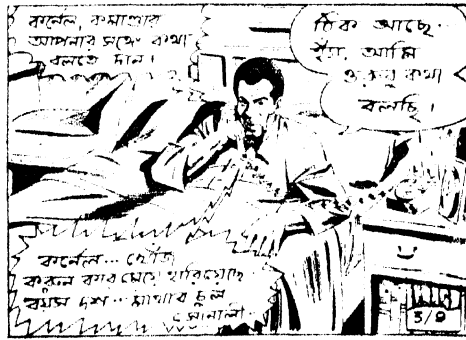 কর্নেল, কমাণ্ডার
আপনার সঙ্গে কথা
বলতে চান।
ঠিক আছে..
হ্যাঁ, আমি
কথা
বলছি।
কর্নেল... খোঁজ
করুন মেয়ে হারিয়েছে
বয়স দশ... মাথার চুল
সোনালী..
3/9